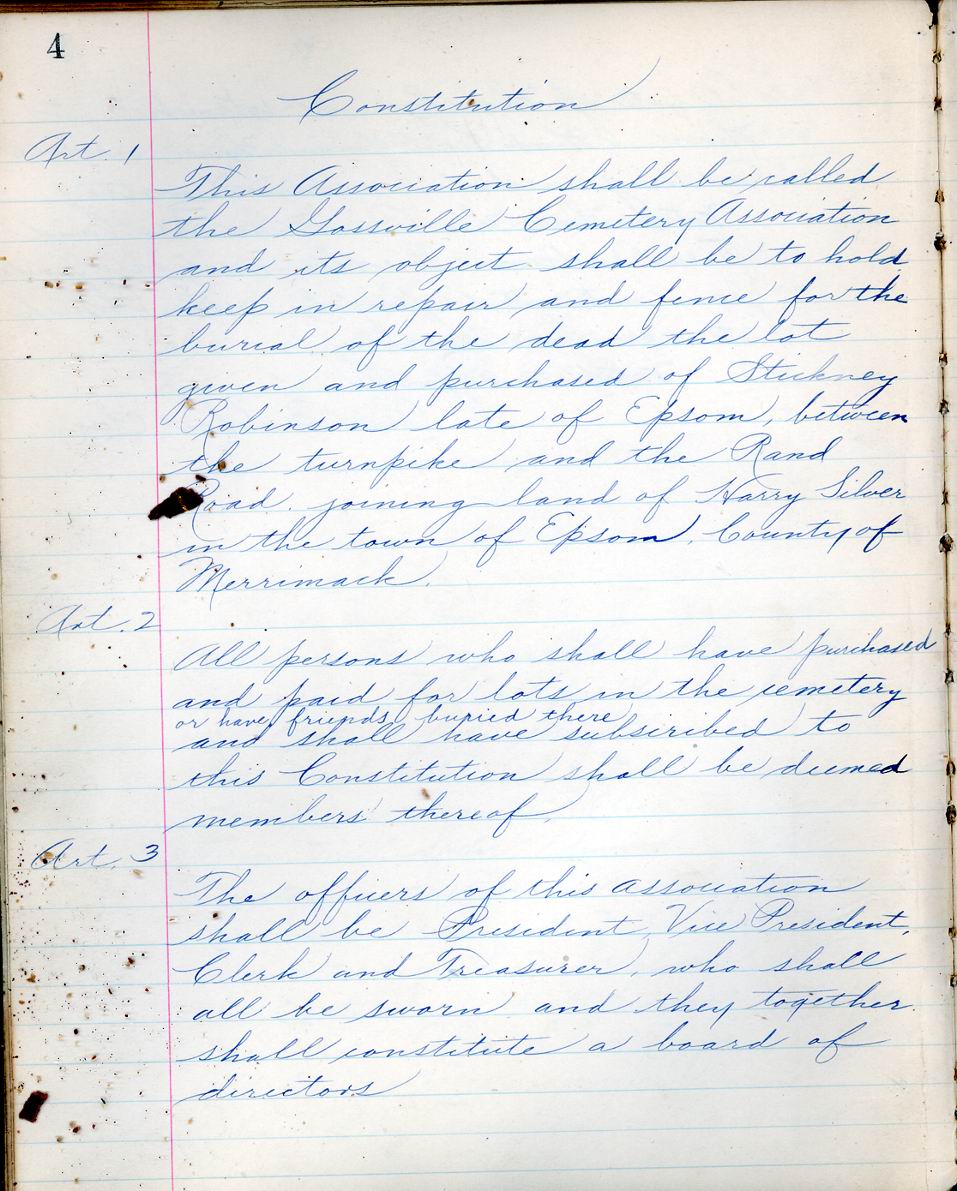 4
Constitution
Art. 1
This Association shall be called
the Gossville Cemetery Association
and its object shall be to hold,
keep in repair and fence for the
burial of the dead the lot
given and purchased of Stickney
Robinson late of Epsom, between
the turnpike and the Rand
Road. joining land of Harry Silver
in the town of Epsom, County of
Merrimack.
Art. 2
All persons who shall have purchased
and paid for lots in the cemetery
or have friends buried there
and shall have subscribed to
this Constitution shall be deemed
members thereof.
Art. 3
The officers of this association
shall be President, Vice President,
Clerk and Treasurer, who shall
all be sworn and they together
shall constitute a board of
directors